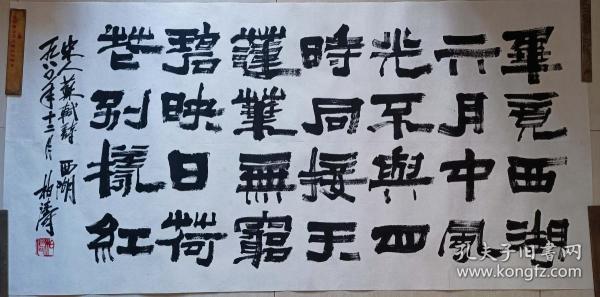 畢竟西湖
六月中風
光不與四
時同接天
蓮葉無窮
碧映日荷
花别樣紅
宋人蘇軾詩 西湖
年十二月 柏濤
孔夫子旧书网
www.kongfz.com